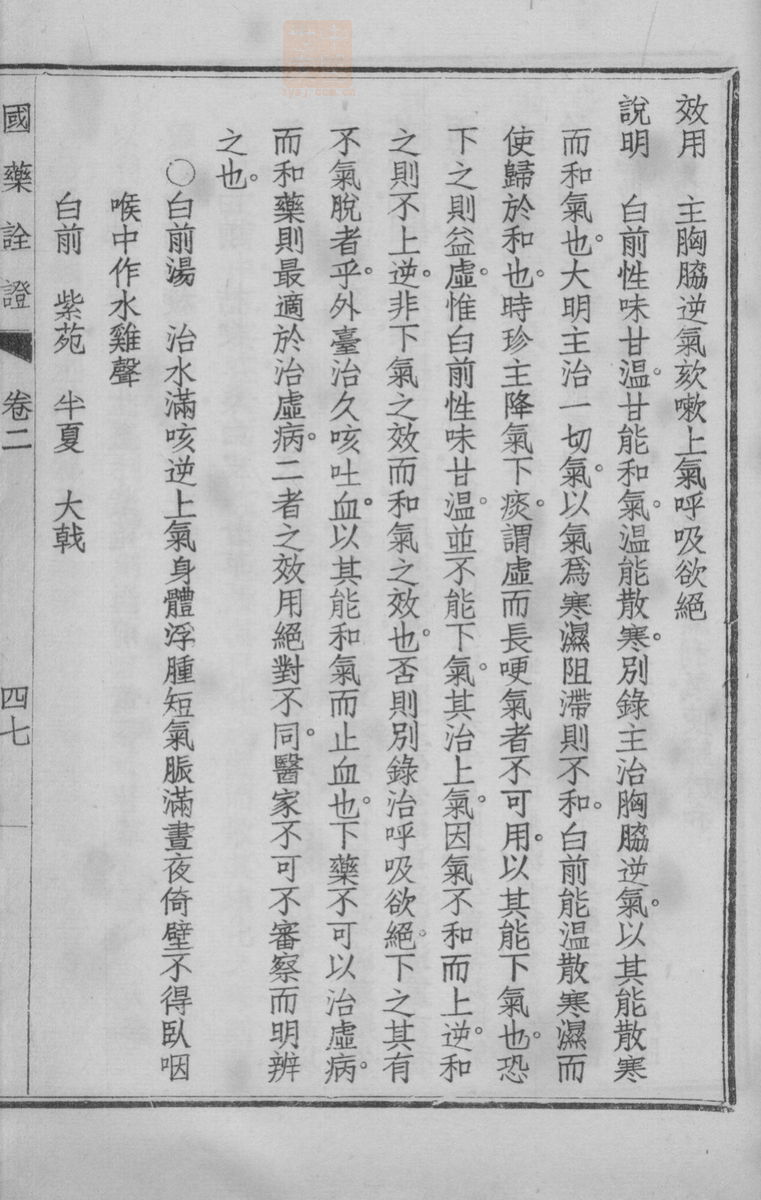 效用　主胸脇逆氣欬嗽上氣呼吸欲絕
說明　白前性味甘温。甘能和氣。温能散寒。別錄主治胸脇逆氣。以其能散寒
而和氣也。大明主治一切氣。以氣爲寒濕阻滯則不和。白前能温散寒濕而
使歸於和也。時珍主降氣下痰。謂虛而長哽氣者不可用。以其能下氣也。恐
下之則益虛。惟白前性味甘温。並不能下氣。其治上氣。因氣不和而上逆。和
之則不上逆。非下氣之效而和氣之效也。否則別錄治呼吸欲絕。下之其有
不氣脫者乎。外臺治久咳吐血。以其能和氣而止血也。下藥不可以治虛病。
而和藥則最適於治虛病。二者之效用絕對不同。醫家不可不審察而明辨
之也。
○白前湯　治水滿咳逆上氣身體浮腫短氣脈滿晝夜倚壁不得臥咽
喉中作水雞聲
白前　紫苑　半夏　大戟
國藥詮證　卷二　四七